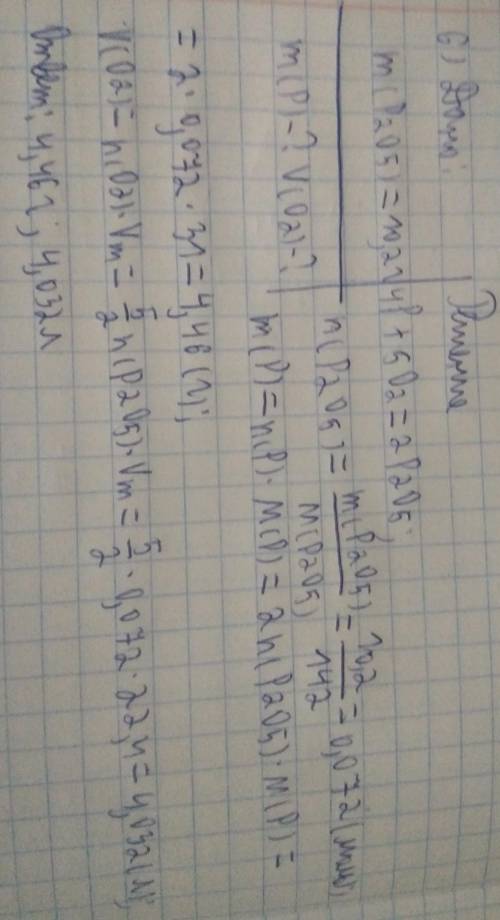 6) Дано: Решение
m(P2O5)=10,2г 4P+5O2=2P2O5;
n(P2O5)= m(P2O5)/M(P2O5) = 10,2/142 = 0,072(моль)
m(P)-? V(O2)-? m(P)=n(P)·M(P)=2n(P2O5)·M(P)=
=2·0,072·31=4,46(г);
V(O2)=n(O2)·Vm= 5/2 n(P2O5)·Vm= 5/2·0,072·22,4=4,032(л);
Ответ: 4,46г; 4,032л